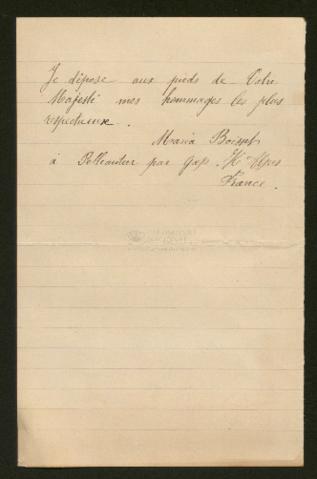 Je dépose aux pieds de Votre
Majesté mes hommages les plus
respectueux.
Maria
à par Gap. Htes Alpes
France.